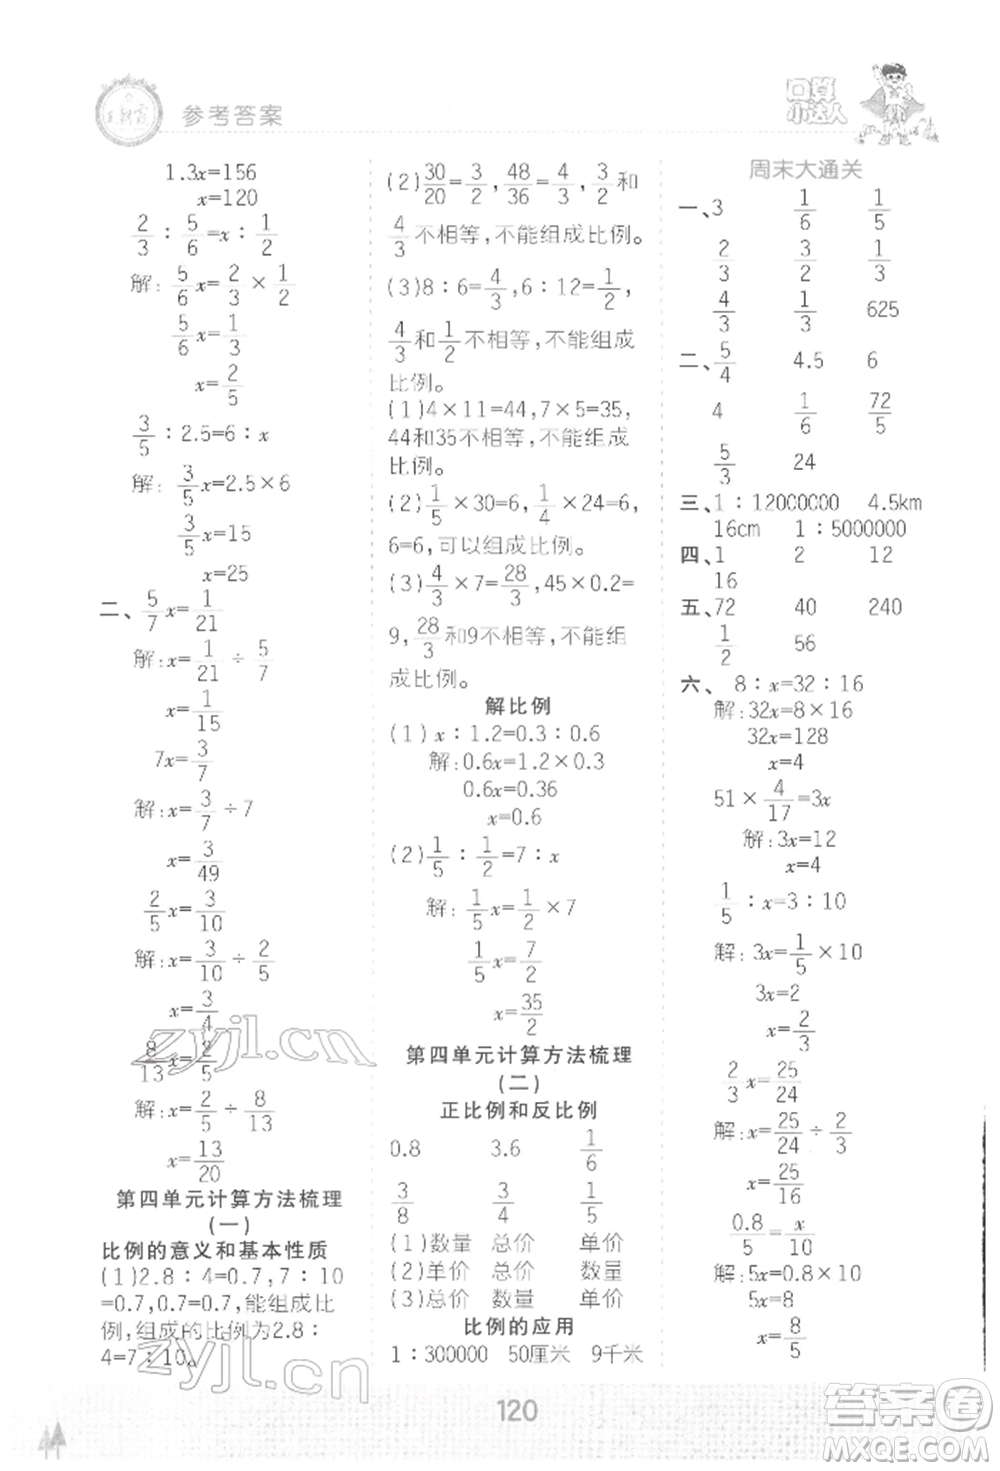 王朝霞
参考答案
口算
小达人
1.3x=156
x=120
2/3：5/6=x：1/2
解：5/6x=2/3×1/2
5/6x=1/3
x=2/5
3/5：2.5=6：x
解：3/5x=2.5×6
3/5x=15
x=25
二、5/7x=1/21
解：x=1/21÷5/7
x=1/15
7x=3/7
解：x=3/7÷7
x=3/49
2/5x=3/10
解：x=3/10÷2/5
x=3/4
8/13x=2/5
解：x=2/5÷8/13
x=13/20
第四单元计算方法梳理
(一)
比例的意义和基本性质
(1)2.8：4=0.7，7：10
=0.7，0.7=0.7，能组成比
例，组成的比例为2.8：
4=7：10。
(2)30/20=3/2，48/36=4/3，3/2和
4/3不相等，不能组成比例。
(3)8：6=4/3，6：12=1/2，
4/3和1/2不相等，不能组成
比例。
(1)4×11=44，7×5=35，
44和35不相等，不能组成
比例。
(2)1/5×30=6，1/4×24=6，
6=6，可以组成比例。
(3)4/3×7=28/3，45×0.2=
9，28/3和9不相等，不能组
成比例。
解比例
(1)x：1.2=0.3：0.6
解：0.6x=1.2×0.3
0.6x=0.36
x=0.6
(2)1/5：1/2=7：x
解：1/5x=1/2×7
1/5x=7/2
x=35/2
第四单元计算方法梳理
(二)
正比例和反比例
0.8 3.6 1/6
3/8 3/4 1/5
(1)数量 总价 单价
(2)单价 总价 数量
(3)总价 数量 单价
比例的应用
1：300000 50厘米 9千米
周末大通关
一、3 1/6 1/5
2/3 3/2 1/3
4/3 1/3 625
二、5/4 4.5 6
4 1/6 72/5
5/3 24
三、1：12000000 4.5km
16cm 1：5000000
四、1 2 12
16
五、72 40 240
1/2 56
六、8：x=32：16
解：32x=8×16
32x=128
x=4
51×4/17=3x
解：3x=12
x=4
1/5：x=3：10
解：3x=1/5×10
3x=2
x=2/3
2/3x=25/24
解：x=25/24÷2/3
x=25/16
0.8/5=x/10
解：5x=0.8×10
5x=8
x=8/5
zyjl.cn
zyjl.cn
120
答案卷
MXQE.COM